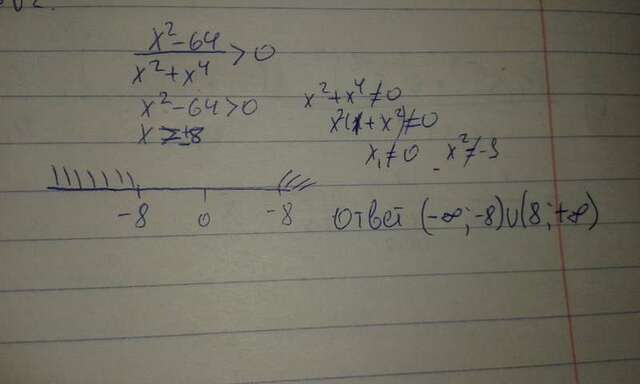 x²-64/x²+x⁴ > 0
x²-64>0
x ≠ ±8
x²+x⁴≠0
x²(1+x²)≠0
x₁≠0 x²≠-1
-8 0 -8
Ответ (-∞; -8)∪(8; +∞)